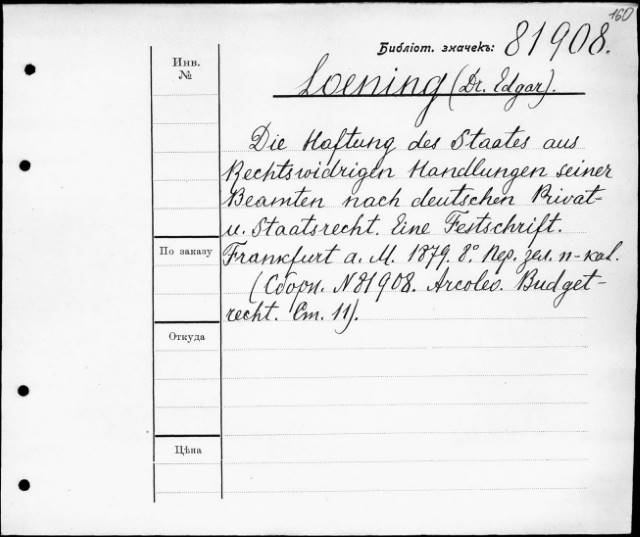 160
Библіот. значекъ: 81908.
Инв.
№
Loening (Dr. Edgar).
Die Haftung des Staates aus
Rechtswidrigen Handlungen seiner
Beamten nach deutschen Privat-
u. Staatsrecht. Eine Festschrift.
По заказу
Frankfurt a. M. 1879. 8º. Пер. зел. п-кал.
(Сборн. N 81908. Arcoleo. Budget-
recht. Ст. 11).
Откуда
Цѣна